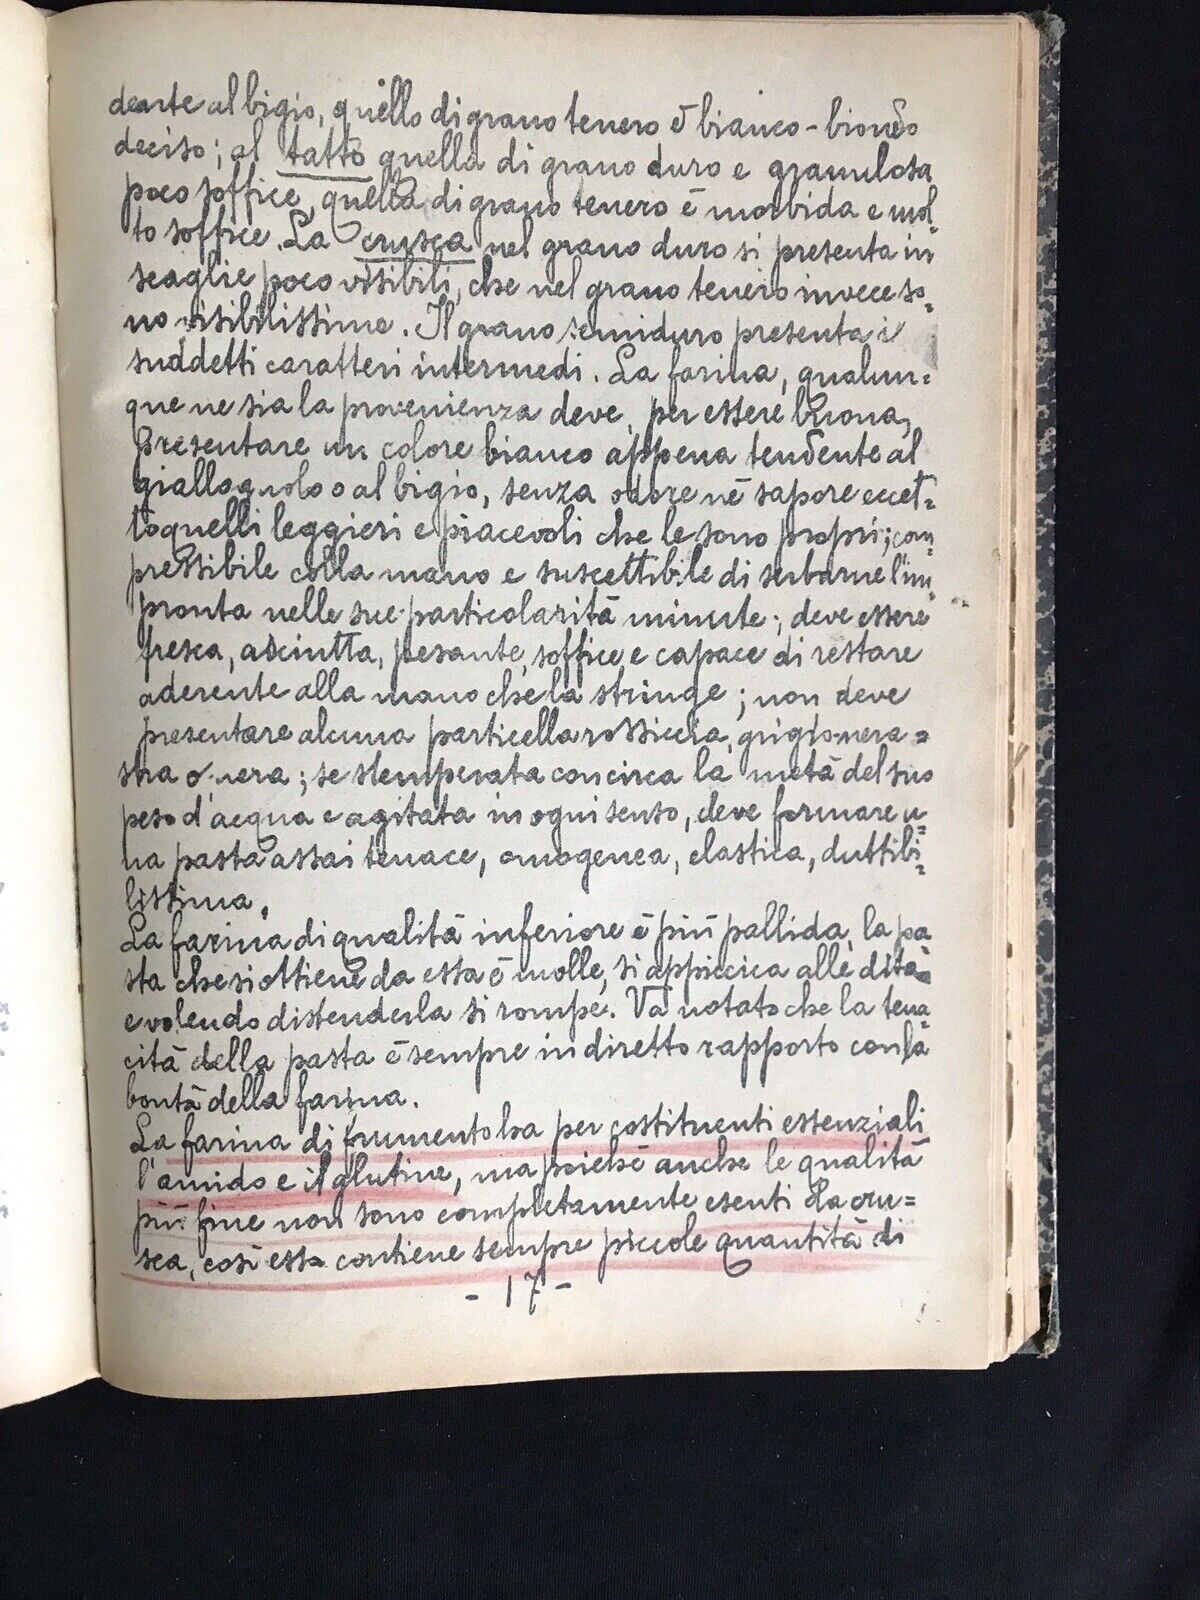 dente al bigio, quello di grano tenero è bianco-biondo
deciso; al tatto quella di grano duro e granulosa
poco soffice, quella di grano tenero è morbida e mol-
to soffice. La crusca nel grano duro si presenta in
scaglie poco visibili, che nel grano tenero invece so=
no visibilissime. Il grano semiduro presenta i
suddetti caratteri intermedi. La farina, qualun=
que ne sia la provenienza deve, per essere buona,
presentare un colore bianco appena tendente al
giallognolo o al bigio, senza odore nè sapore eccet=
to quelli leggieri e piacevoli che le sono propri; com=
pressibile colla mano e suscettibile di serbarne l'im=
pronta nelle sue particolarità minute; deve essere
fresca, asciutta, pesante, soffice e capace di restare
aderente alla mano che la stringe; non deve
presentare alcuna particella rossiccia, grigionera=
stra o nera; se stemperata con circa la metà del suo
peso d'acqua e agitata in ogni senso, deve formare u=
na pasta assai tenace, omogenea, elastica, duttibi=
lissima.
La farina di qualità inferiore è più pallida, la pa=
sta che si ottiene da essa è molle, si appiccica alle dita
e volendo distenderla si rompe. Va notato che la tena=
cità della pasta è sempre in diretto rapporto con la
bontà della farina.
La farina di frumento ha per costituenti essenziali
l'amido e il glutine, ma poichè anche le qualità
più fine non sono completamente esenti da cru=
sca, così essa contiene sempre piccole quantità di
- 17 -